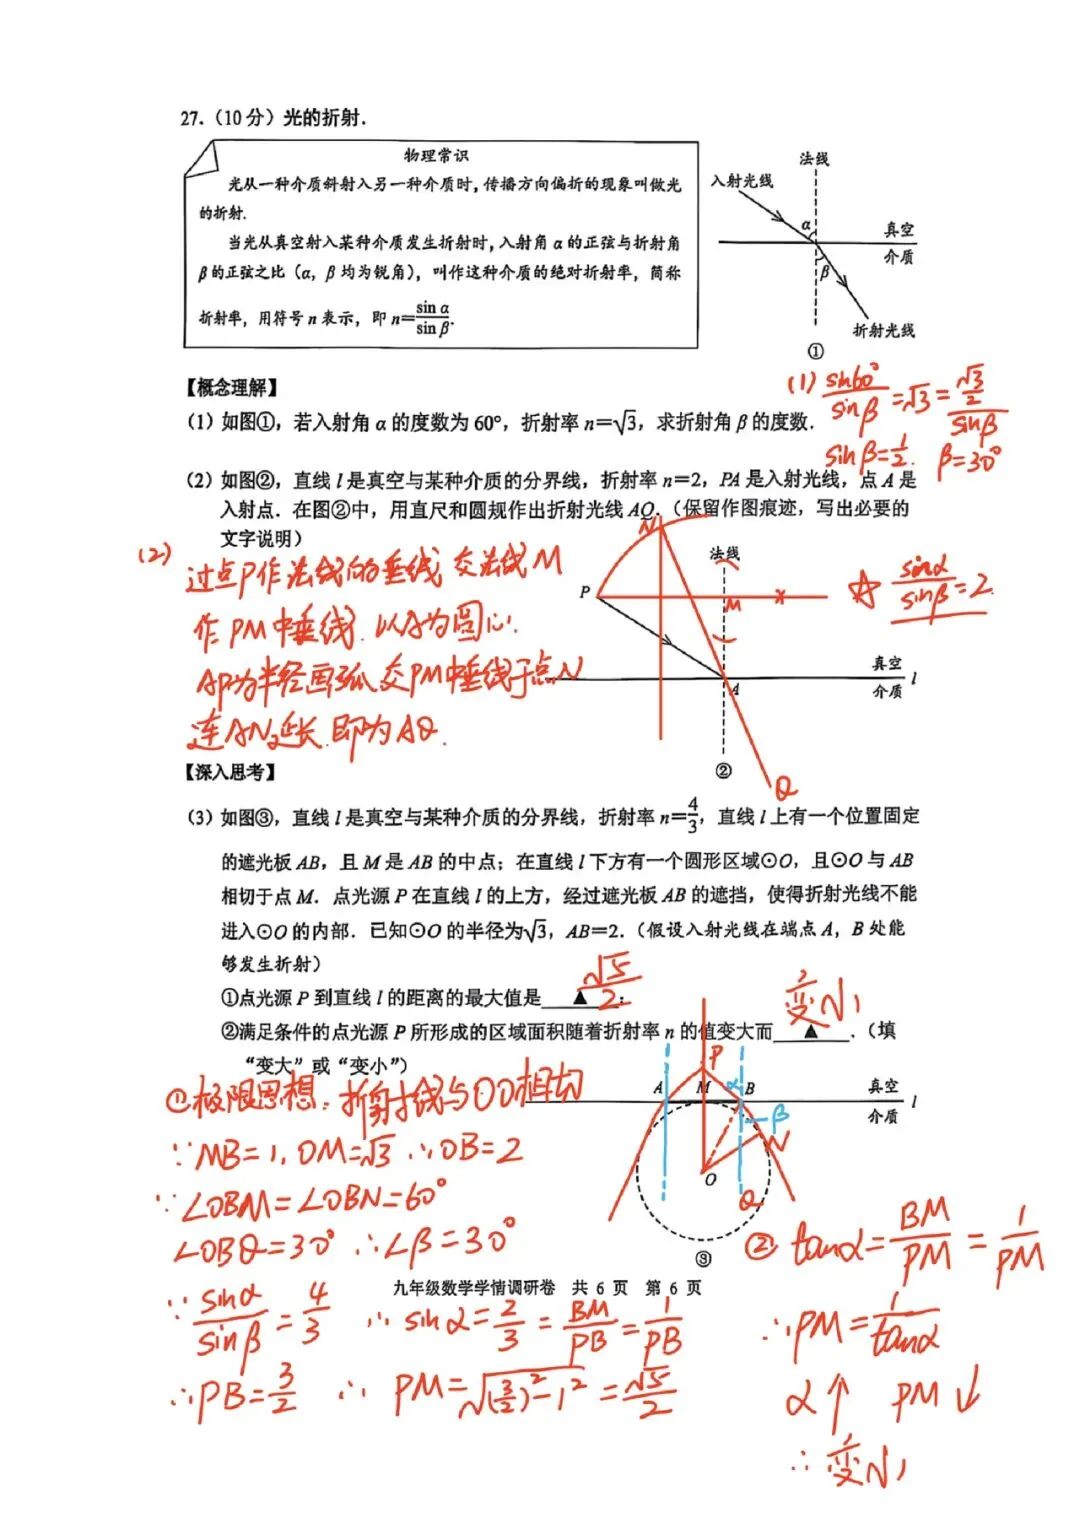 27.（10分）光的折射.
物理常识
光从一种介质斜射入另一种介质时，传播方向偏折的现象叫做光
的折射.
当光从真空射入某种介质发生折射时，入射角 α 的正弦与折射角
β 的正弦之比（α，β 均为锐角），叫作这种介质的绝对折射率，简称
折射率，用符号 n 表示，即 n=sin α/sin β.
法线
入射光线
α
真空
介质
β
折射光线
①
【概念理解】
(1) 如图①，若入射角 α 的度数为 60°，折射率 n=√3，求折射角 β 的度数.
(1) sin60°/sinβ=√3=(√3/2)/sinβ
sinβ=1/2. β=30°
(2) 如图②，直线 l 是真空与某种介质的分界线，折射率 n=2，PA 是入射光线，点 A 是
入射点．在图②中，用直尺和圆规作出折射光线 AQ.（保留作图痕迹，写出必要的
文字说明）
(2) 过点P作法线的垂线 交法线M
作PM中垂线. 以A为圆心.
AP为半径画弧 交PM中垂线于点N
连AN延长. 即为AQ.
N
法线
P
M
☆ sinα/sinβ=2.
真空
l
A
介质
②
Q
【深入思考】
(3) 如图③，直线 l 是真空与某种介质的分界线，折射率 n=4/3，直线 l 上有一个位置固定
的遮光板 AB，且 M 是 AB 的中点；在直线 l 下方有一个圆形区域⊙O，且⊙O 与 AB
相切于点 M．点光源 P 在直线 l 的上方，经过遮光板 AB 的遮挡，使得折射光线不能
进入⊙O 的内部．已知⊙O 的半径为√3，AB=2.（假设入射光线在端点 A，B 处能
够发生折射）
①点光源 P 到直线 l 的距离的最大值是 ▲ ；
√5/2
②满足条件的点光源 P 所形成的区域面积随着折射率 n 的值变大而 ▲ ．（填
变小
“变大”或“变小”）
P
A
M
α
B
真空
l
介质
β
N
O
Q
③
①极限思想：折射线与⊙O相切
∵MB=1, OM=√3 ∴OB=2
∵∠OBM=∠OBN=60°
∠OBQ=30° ∴∠β=30°
∵sinα/sinβ=4/3 ∴sinα=2/3=BM/PB=1/PB
∴PB=3/2 ∴PM=√((3/2)²-1²)=√5/2
② tanα=BM/PM=1/PM
∴PM=1/tanα
α↑ PM↓
∴变小
九年级数学学情调研卷 共 6 页 第 6 页